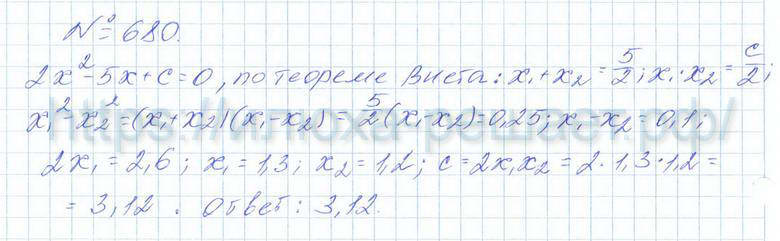 №680.
2x²-5x+c=0, по теореме Виета: x₁+x₂=5/2; x₁·x₂=c/2;
x₁²-x₂²=(x₁+x₂)(x₁-x₂)=5/2(x₁-x₂)=0,25; x₁-x₂=0,1;
2x₁=2,6; x₁=1,3; x₂=1,2; c=2x₁x₂=2·1,3·1,2=
=3,12. Ответ: 3,12.